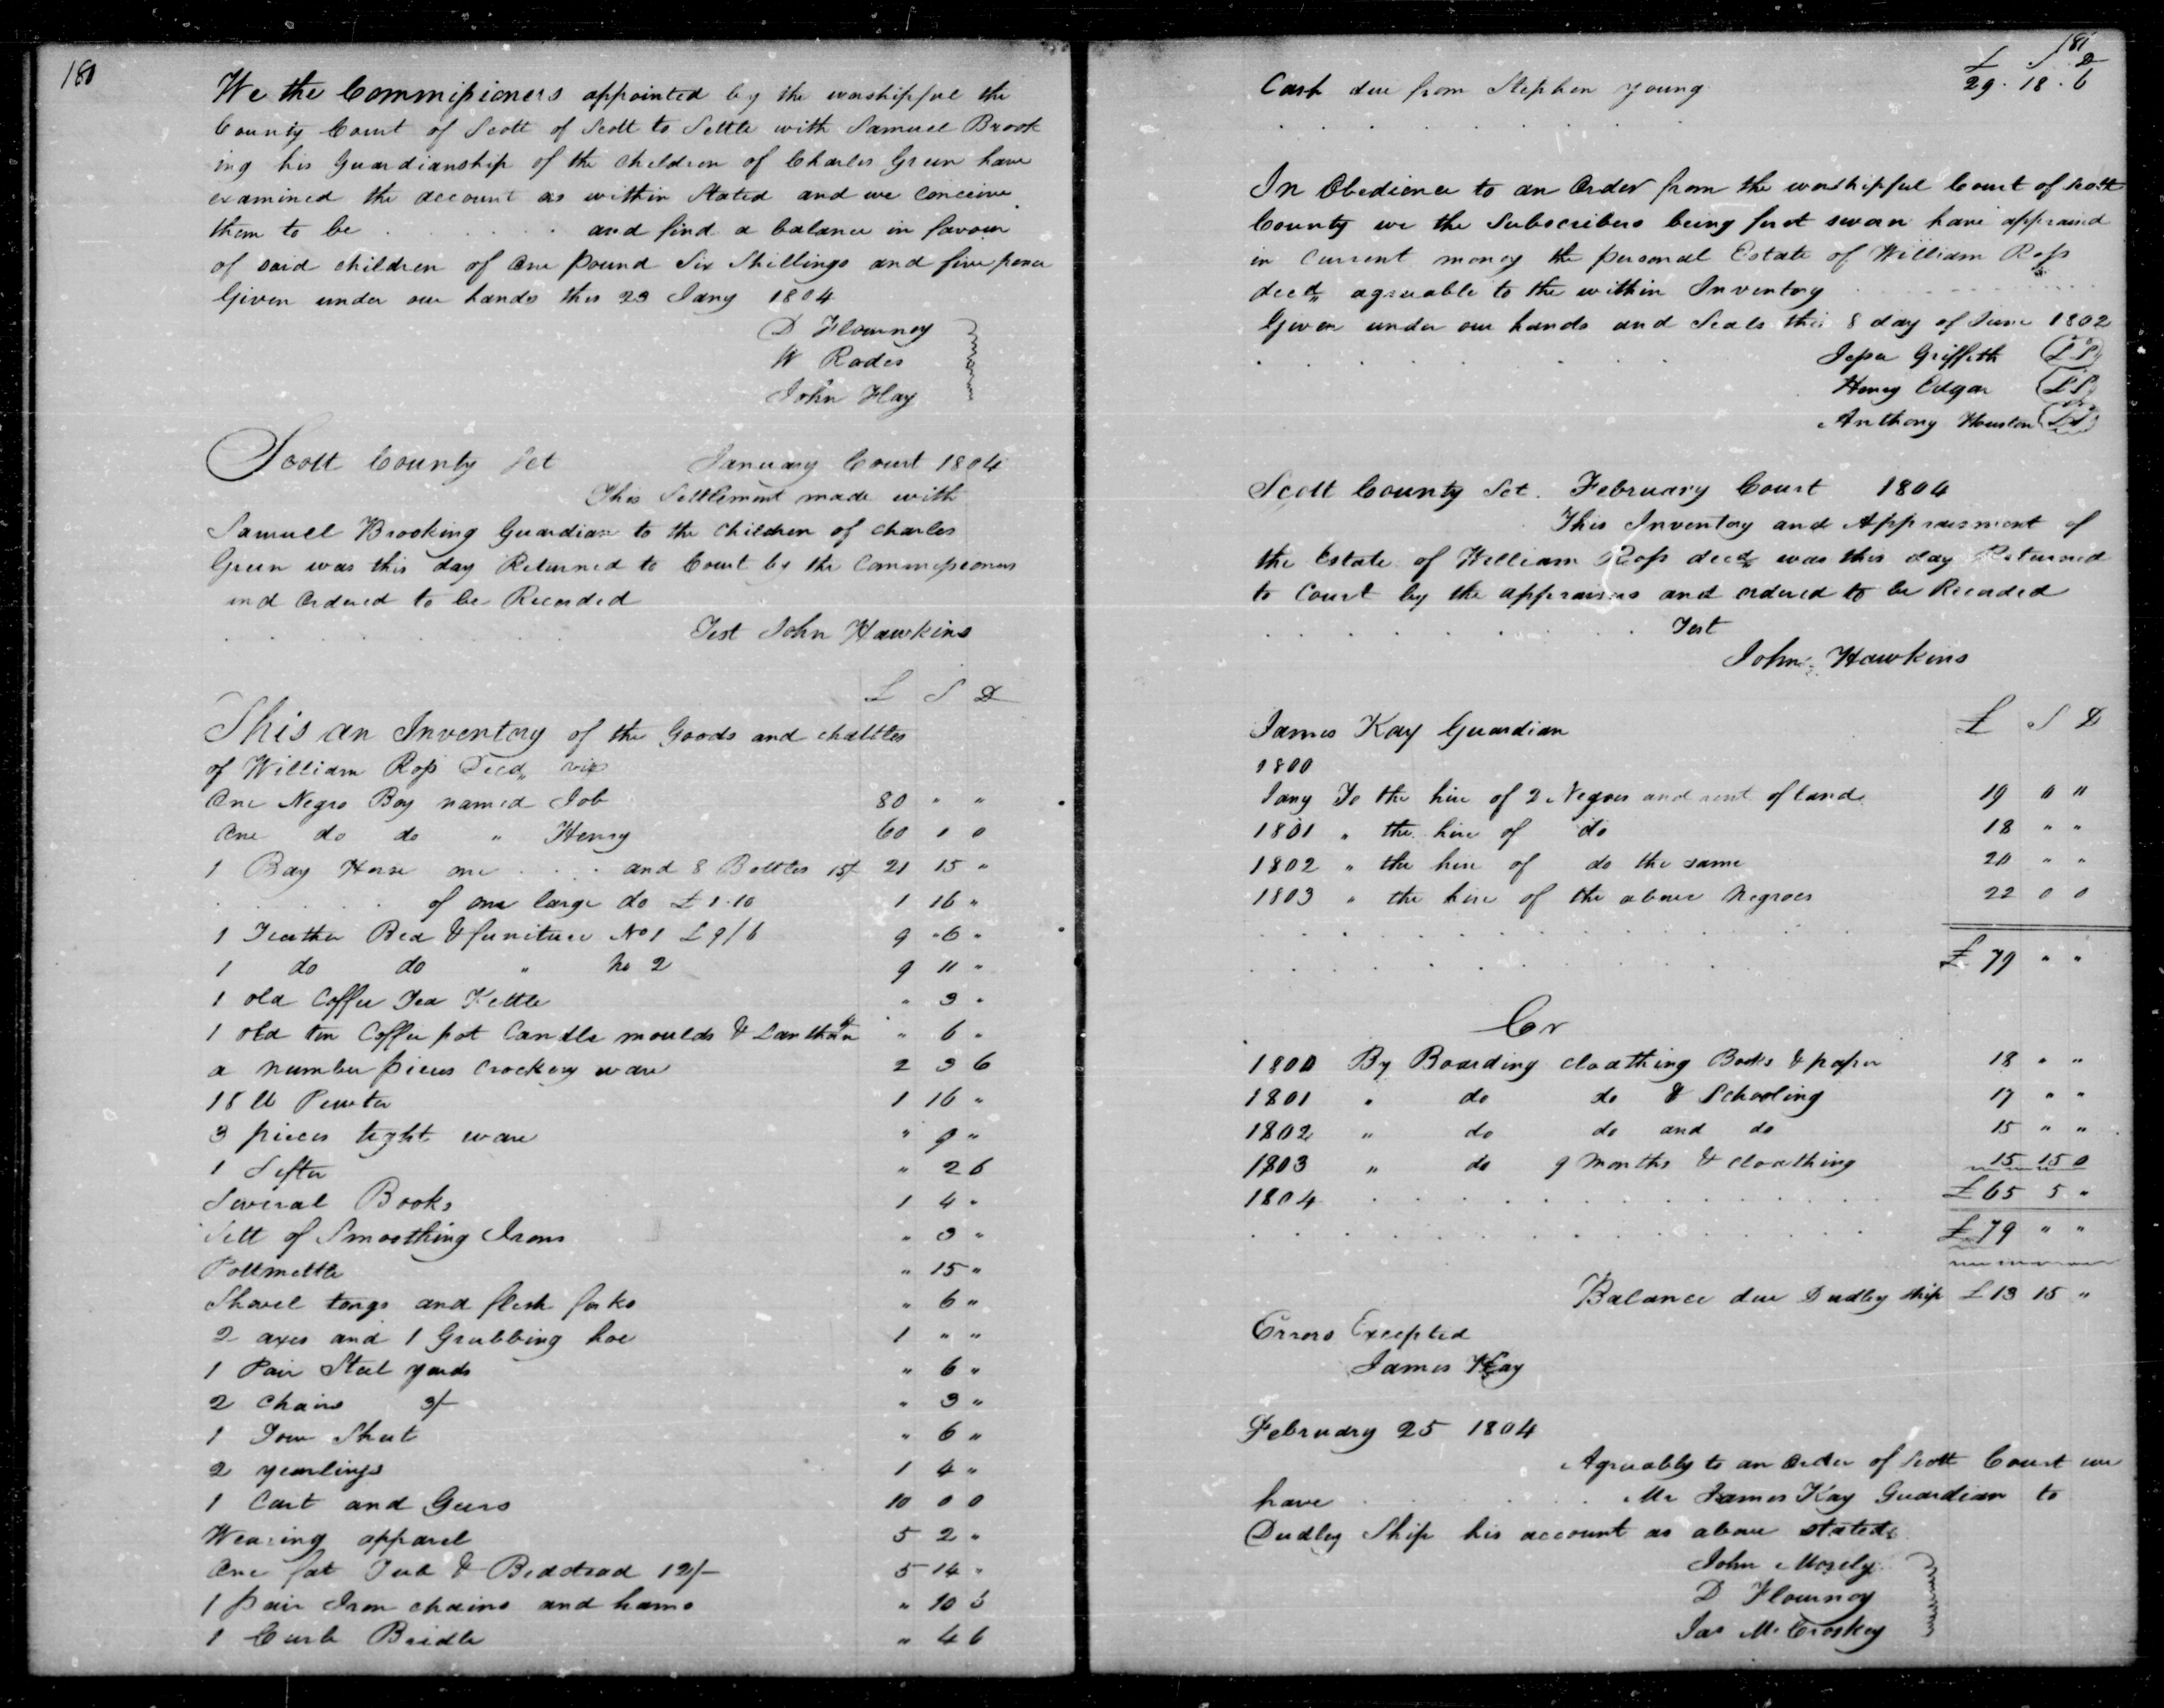 180
We the Commissioners appointed by the worshipful the
County Court of Scott of Scott to Settle with Samuel Brook
ing his Guardianship of the Children of Charles Green have
examined the account as within Stated and we Conceive
them to be . . . . . . and find a balance in favour
of said children of One Pound Six Shillings and five pence
Given under our hands this 23 Jany 1804
D Flournoy
W Rodes
John Hay
Scott County Sct January Court 1804
This Settlement made with
Samuel Brooking Guardian to the Children of Charles
Green was this day Returned to Court by the Commissioners
and Ordered to be Recorded
Test John Hawkins
£ S D
This an Inventory of the Goods and chattles
of William Ross Decd, viz
One Negro Boy named Job 80 " "
One do do " Henry 60 0 0
1 Bay Horse one . . . . and 8 Bottles 15/ 21 15 "
. . . . . of one large do £1.10 1 16 "
1 Feather Bed & furniture No 1 £9/6 9 "6 "
1 do do " No 2 9 11 "
1 old Coffee Tea Kettle " 3 "
1 old tin Coffee pot Candle moulds & Lanthorn " 6 "
a number pieces Crockery ware 2 3 6
18 lb Pewter 1 16 "
3 pieces tight ware " 9 "
1 Sifter " 2 6
Several Books 1 4 "
Sett of Smoothing Irons " 3 "
Pottmettle " 15 "
Shovel tongs and flesh forks " 6 "
2 axes and 1 Grubbing hoe 1 " "
1 Pair Steel yards " 6 "
2 Chairs 3/- " 3 "
1 Tow Sheet " 6 "
2 yearlings 1 4 "
1 Cart and Geers 10 0 0
Wearing apparel 5 2 "
One fat Tub & Bedstead 12/- 5 14 "
1 pair Iron chains and hams " 10 5
1 Curb Bridle " 4 6
181
£ S D
Cash due from Stephen Young 29 . 18 . 6
In Obedience to an Order from the worshipful Court of Scott
County we the Subscribers being first swan have appraised
in Current money the personal Estate of William Ross
decd, agreeable to the within Inventory
Given under our hands and Seals this 8 day of June 1802
Jesse Griffith (LS)
Henry Edgar (LS)
Anthony Houston (LS)
Scott County Sct. February Court 1804
This Inventory and Appraisment of
the Estate of William Ross decd, was this day Returned
to Court by the appraisers and ordered to be Recorded
Test
John Hawkins
James Kay Guardian £ S D
1800
Jany To the hire of 2 Negroes and rent of land 19 0 "
1801 " the hire of do 18 " "
1802 " the hire of do the same 20 " "
1803 " the hire of the above Negroes 22 0 0
£ 79 " "
Cr
1800 By Boarding Cloathing Books & paper 18 " "
1801 " do do & Schooling 17 " "
1802 " do do and do 15 " "
1803 " do 9 Months & Cloathing 15 15 0
1804 £65 5 "
£ 79 " "
Balance due Dudley Ship £13 15 "
Errors Excepted
James Kay
February 25 1804
Agreably to an Order of Scott Court we
have . . . . . . Mr James Kay Guardian to
Dudley Ship his account as above stated
John Mosely
D Flournoy
Jas McCroskey